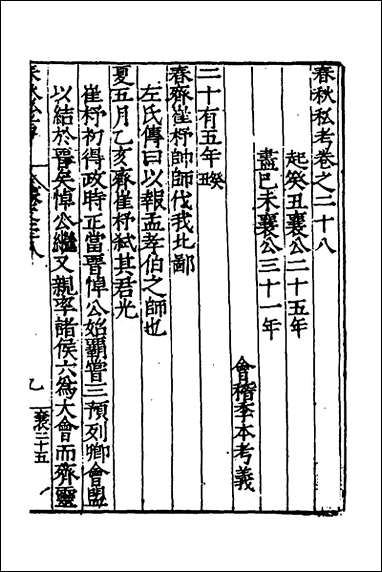 春秋私考卷之二十八
起癸丑襄公二十五年
盡己未襄公三十一年
會稽季本考義
二十有五年癸丑
春齊崔杼帥師伐我北鄙
左氏傳曰以報孟孝伯之師也
夏五月乙亥齊崔杼弑其君光
崔杼初得政時正當晉悼公始霸嘗三預列卿會盟
以結於晉矣悼公繼又親率諸侯六為大會而齊靈
襄二十五